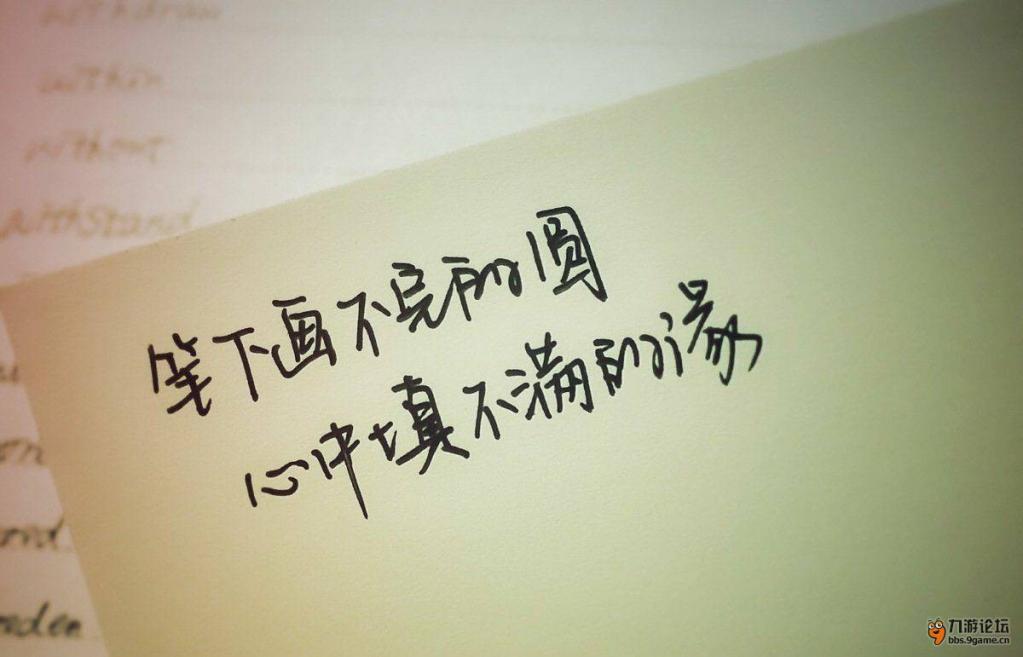 withdraw
within
without
withstand
笔下画不完的圆
心中填不满的缘
九游论坛
bbs.9game.cn